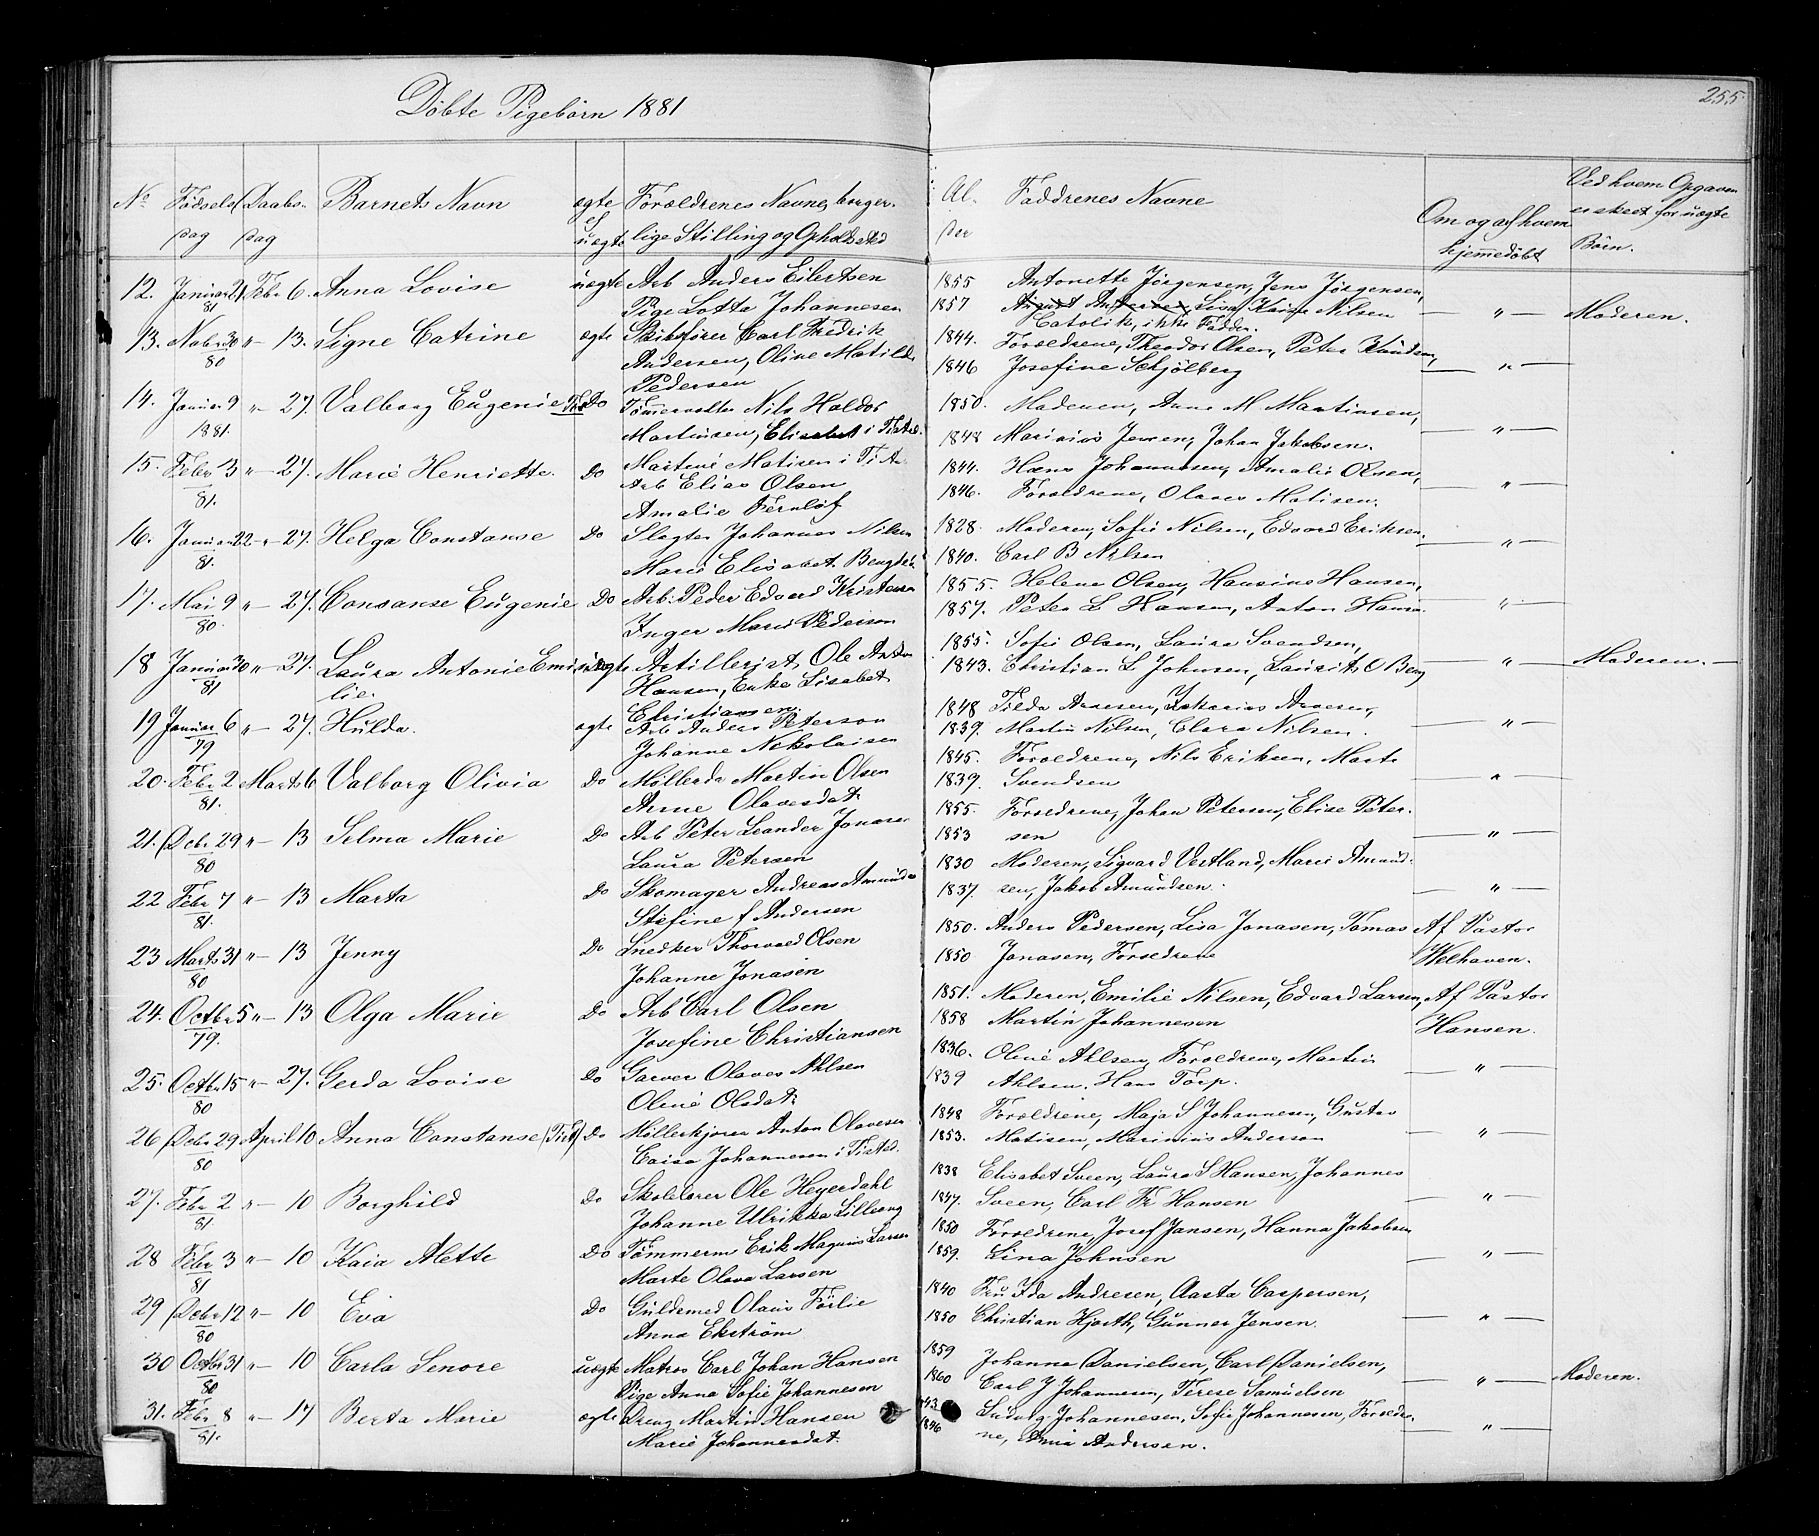 Döbte Pigebörn 1881
255
No Födsels dag Daabs dag Barnets Navn ægte el uægte Forældrenes Navne, borger- lige Stilling og Opholdssted Al- der Faddrenes Navne Om og af hvem hjemmedöbt Ved hvem Opgaven er skeet for uægte Börn.
12. Januar 21 81 Febr 6. Anna Lovise uægte Arb Anders Eilertsen 1855 Antonette Jörgensen, Jens Jörgensen,
Pige Lotta Johannesen 1857 Lisa, Kaisa Nilsen — " — Moderen.
Catolik, ikke Fadder.
13. Nobr 30 80 " — 13. Signe Catrine ægte Skibsförer Carl Fredrik 1844. Forældrene, Theodor Olsen, Peter Knudsen,
Andersen, Oline Matilde 1846 Josefine Schjölberg — " —
Pedersen
14. Januar 9 1881. " — 27. Valborg Eugenie Do Nils Haldor 1850. Moderen, Anne M. Martinsen,
Martinsen, 1848 Marinius Jensen, Johan Jakobsen. — " —
15. Febr 3 81. " — 27. Marie Henriette. Do Martine Matisen i 1844. Hans Johannesen, Amalie Olsen,
Arb Elias Olsen 1846. Forældrene, Olaves Matisen. — " —
Amalie Fernlöf
16. Januar 22 81. " — 27. Helga Constanse Do Slagter Johannes Nilsen 1828. Moderen, Sofie Nilsen, Edvard Eriksen.
Marie Elisabet 1840. Carl B Nilsen — " —
17. Mai 9 80. " — 27. Consanse Eugenie Do Arb. Peder Edvard Kristensen 1855. Helene Olsen, Hansine Hansen,
Inger Marie Pederson 1857. Peter L Hansen, Anton Hansen — " —
18 Januar 30 81 " — 27. Laura Antonie Emi- uægte Artillerist, Ole Anton 1855. Sofie Olsen, Laura Svendsen,
lie. Hansen, Enke Lisabet 1843. Christian L Johnsen, Laurits O Berg — " — Moderen. —
Christiansen.
19 Januar 6 79 " — 27. Hulda. ægte Arb Anders Peterson 1848 Tilda Arnesen, Zakarias Arnesen,
Johanne Nikolaisen 1839. Martin Nilsen, Clara Nilsen. — " —
20. Febr 2 81. Marts 6 Valborg Olivia Do Möllerdr Martin Olsen 1845. Forældrene, Nils Eriksen, Marte
Anne Olavesdat. 1839. Svendsen — " —
21. Debr 29 80 " — 13 Selma Marie Do Arb Peter Leander Jonasen 1855. Forældrene, Johan Petersen, Elise Peter-
Laura Petersen 1853 sen — " —
22 Febr 7 81. " — 13 Marta Do Skomager Andreas Amundsen 1830 Moderen, Sigvard Vestland, Marie Amund-
Stefine f Andersen 1837. sen, Jakob Amundsen. — " —
23 Marts 31 80 " — 13 Jenny Do Snedker Thorvald Olsen 1850. Anders Pedersen, Lisa Jonasen, Tomas Af Pastor
Johanne Jonasen 1850 Jonasen, Forældrene Welhaven.
24. Octbr 5 79. " — 13 Olga Marie Do Arb Carl Olsen 1851. Moderen, Emilie Nilsen, Edvard Larsen, Af Pastor
Josefine Christiansen 1858 Martin Johannesen Hansen.
25. Octbr 15 80 " — 27. Gerda Lovise Do Garver Olaves Ahlsen 1836. Oline Ahlsen, Forældrene, Martin
Oline Olsdat. 1839 Ahlsen. Hans Torp. — " —
26 Debr 29 80 April 10 Anna Constanse (Tist) Do Möllerkjörer Anton Olavesen 1848 Forældrene, Maja S Johannesen, Gustav
Caisa Johannesen i Tisted. 1853. Matisen, Marinius Anderson — " —
27. Febr 2 81. " — 10 Borghild Do Skolelærer Ole Heyerdahl 1838 Elisabet Sveen, Laura S Hansen, Johannes
Johanne Ulrikka Lilleeng 1847. Sveen, Carl Fr Hansen — " —
28 Febr 3 81 " — 10 Kaia Alette Do Tömmerm Erik Magnus Larsen 1850 Forældrene, Josef Jansen, Hanna Jakobsen
Marte Olava Larsen 1859. Lina Johnsen — " —
29 Debr 12 80 " — 10 Eva Do Guldsmed Olaus Förlie 1840 Fru Ida Andresen, Aasta Caspersen,
Anna Ekström 1850 Christian Hjorth, Gunner Jensen. — " —
30 Octbr 31 80 " — 10 Carla Senore uægte Matros Carl Johan Hansen 1859 Johanna Danielsen, Carl Danielsen,
Pige Anna Sofie Johannesen 1860 Carl J Johannesen, Terese Samuelsen — " — Moderen.
31. Febr 8 81. " — 17 Berta Marie ægte Dreng Martin Hansen 43. Ludvig Johannesen, Sofie Johannesen, Forældre-
Marie Johannesdat. 1846 ne, Andersen. — " —